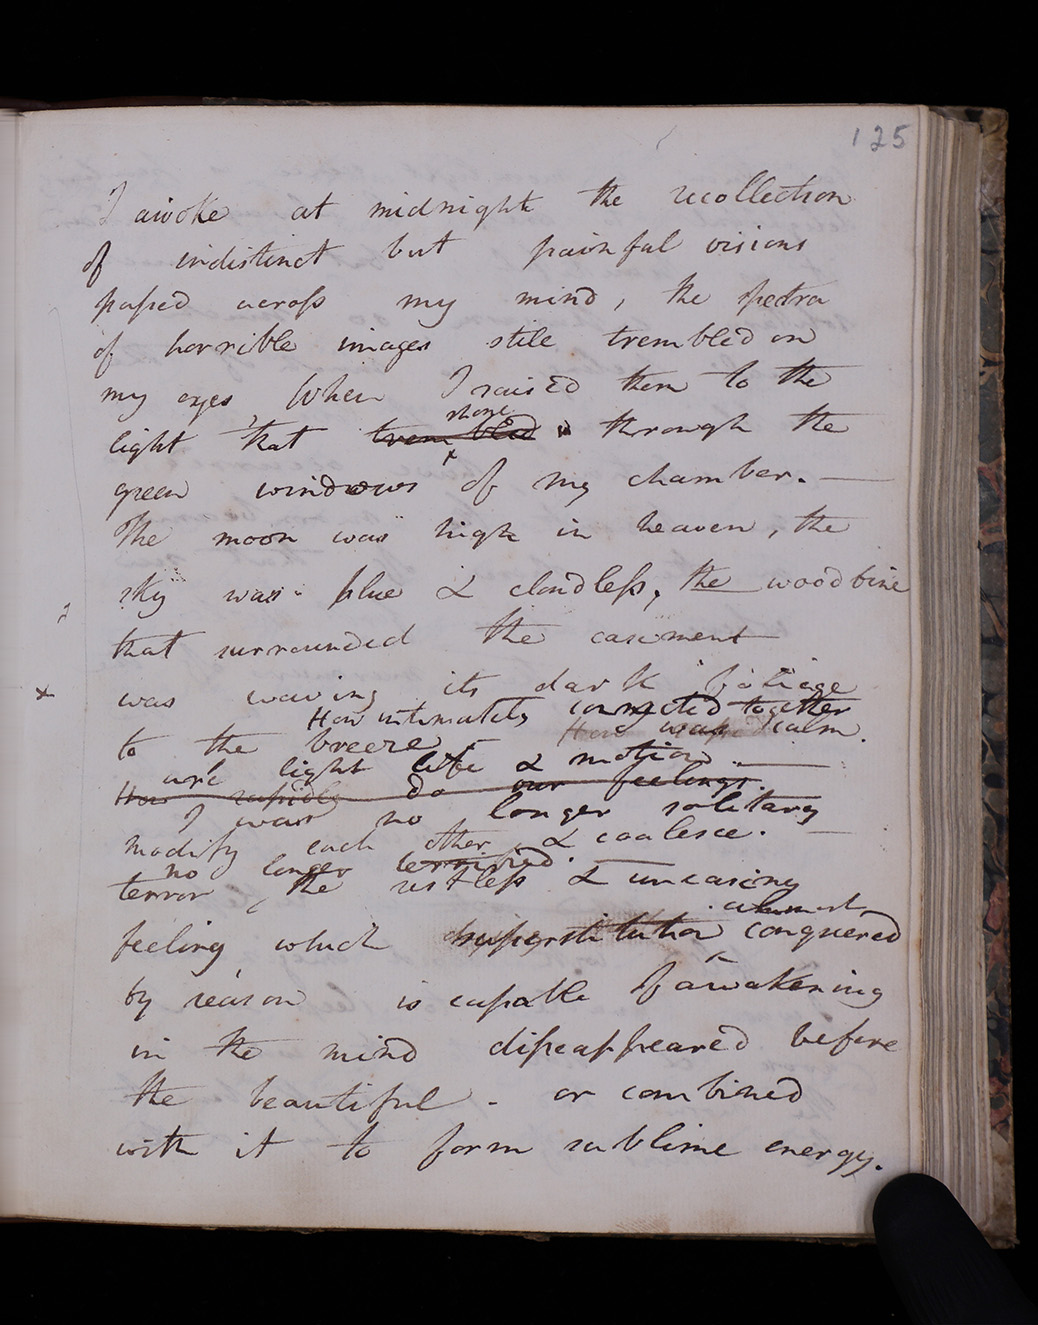 125
I awoke at midnight the recollection
of indistinct but painful visions
passed across my mind, the spectra
of horrible images still trembled on
my eyes When I raised them to the
shone
light that trembled through the
green windows of my chamber. —
The moon was high in heaven, the
sky was blue & cloudless, the woodbine
that surrounded the casement
x was waving its dark foliage
How intimately connected together
to the breeze. There was calm.
are light life & motion. —
How rapidly do our feelings
I was no longer solitary
modify each other & coalesce. —
no longer terrified. —
terror, the restless & uneasing
almost
feeling which superstition conquered
by reason is capable of awakening
in the mind disappeared before
the beautiful - or combined
with it to form sublime energy.